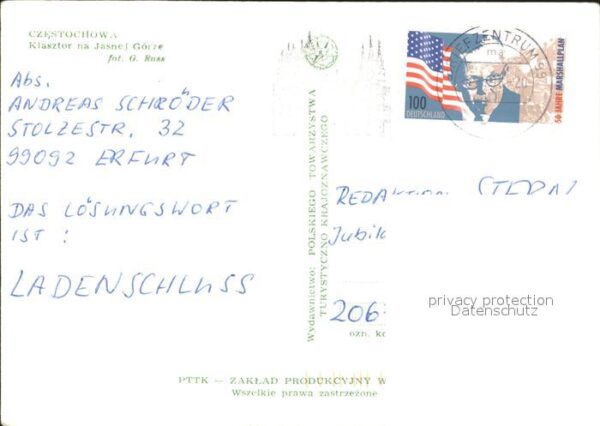 CZĘSTOCHOWA
Klasztor na Jasnej Górze
fot. G. Russ
Abs.
ANDREAS SCHRÖDER
STOLZESTR. 32
99092 ERFURT
DAS LÖSUNGSWORT
IST :
LADENSCHLUSS
Wydawnictwo: POLSKIEGO TOWARZYSTWA
TURYSTYCZNO KRAJOZNAWCZEGO
100
DEUTSCHLAND
50 JAHRE MARSHALLPLAN
EFZENTRUM
REDAKTION
Jubil
206
privacy protection
Datenschutz
ozn. k
PTTK — ZAKŁAD PRODUKCYJNY W
Wszelkie prawa zastrzeżone